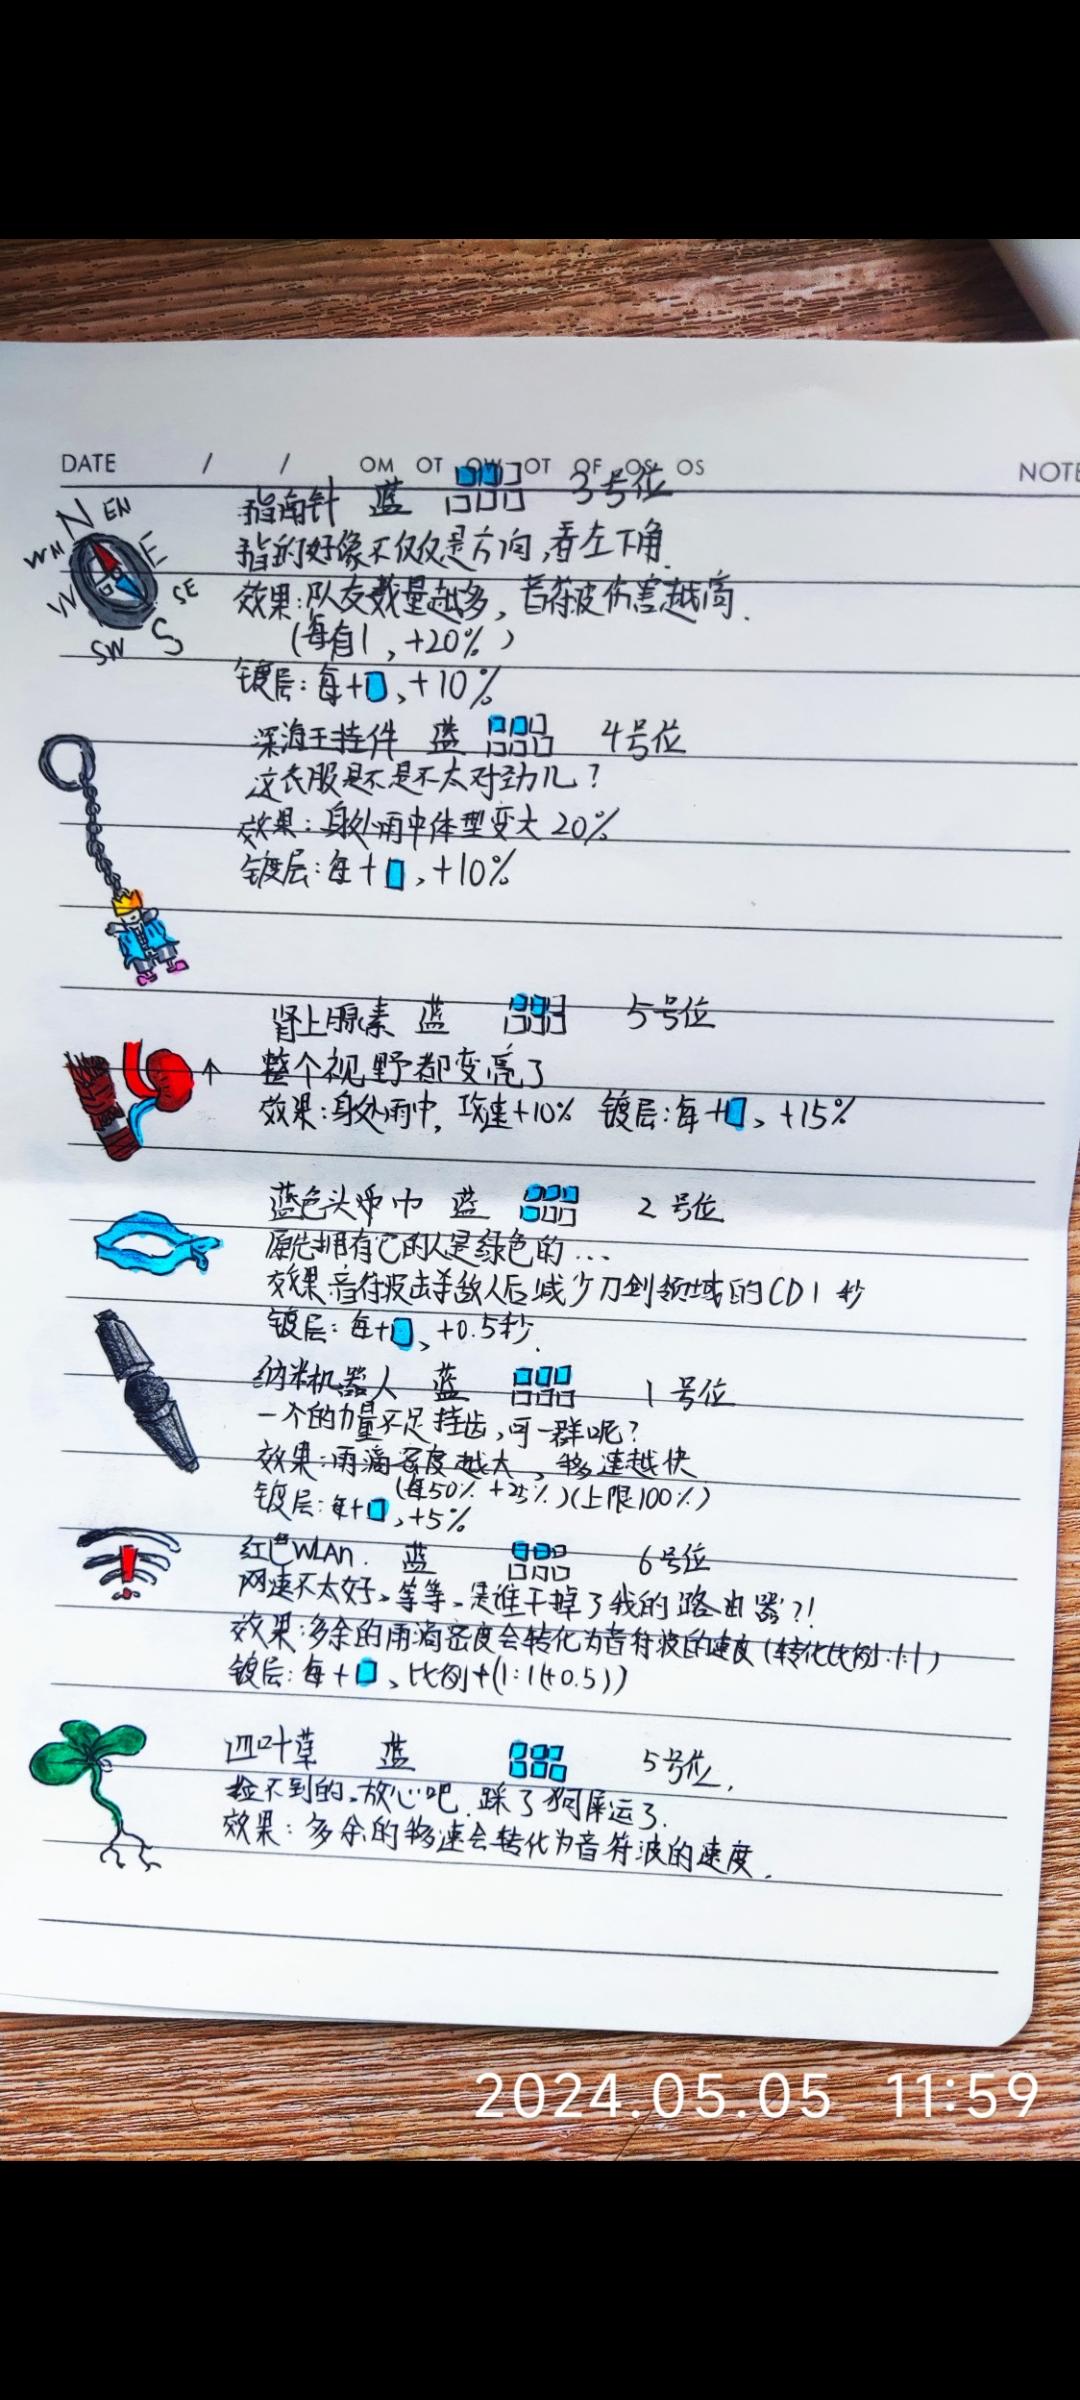 DATE / / OM OT OW OT OF OS OS NOTE
指南针 蓝 3号位
指的好像不仅仅是方向,看左下角.
效果:队友数量越多,音符波伤害越高.
(每有1,+20%)
镀层:每+,+10%
N EN E SE S SW W WN
深海王挂件 蓝 4号位
这衣服是不是不太对劲儿?
效果:身处雨中体型变大20%
镀层:每+,+10%
肾上腺素 蓝 5号位
整个视野都变亮了
效果:身处雨中,攻速+10% 镀层:每+、+15%
蓝色头巾 蓝 2号位
原先拥有它的人是绿色的...
效果:音符波击杀敌人后减少刀剑领域的CD1秒
镀层:每+、+0.5秒.
纳米机器人 蓝 1号位
一个的力量不足挂齿,可一群呢?
效果:雨滴密度越大,移速越快
(每50%+25%)(上限100%)
镀层:每+,+5%
红色WLAn. 蓝 6号位
网速不太好、等等、是谁干掉了我的路由器?!
效果:多余的雨滴密度会转化为音符波的速度(转化比例:1:1)
镀层:每+、比例+(1:1(+0.5))
四叶草 蓝 5号位.
捡不到的、放心吧.踩了狗屎运了.
效果:多余的移速会转化为音符波的速度.
2024.05.05 11:59